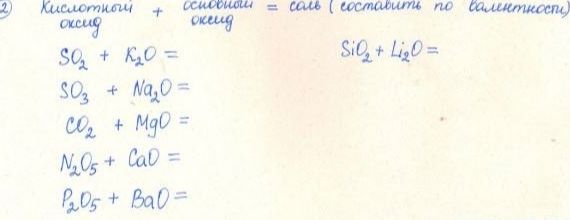 2) Кислотный оксид + основный оксид = соль (составить по валентности)
SO₂ + K₂O =
SO₃ + Na₂O =
CO₂ + MgO =
N₂O₅ + CaO =
P₂O₅ + BaO =
SiO₂ + Li₂O =